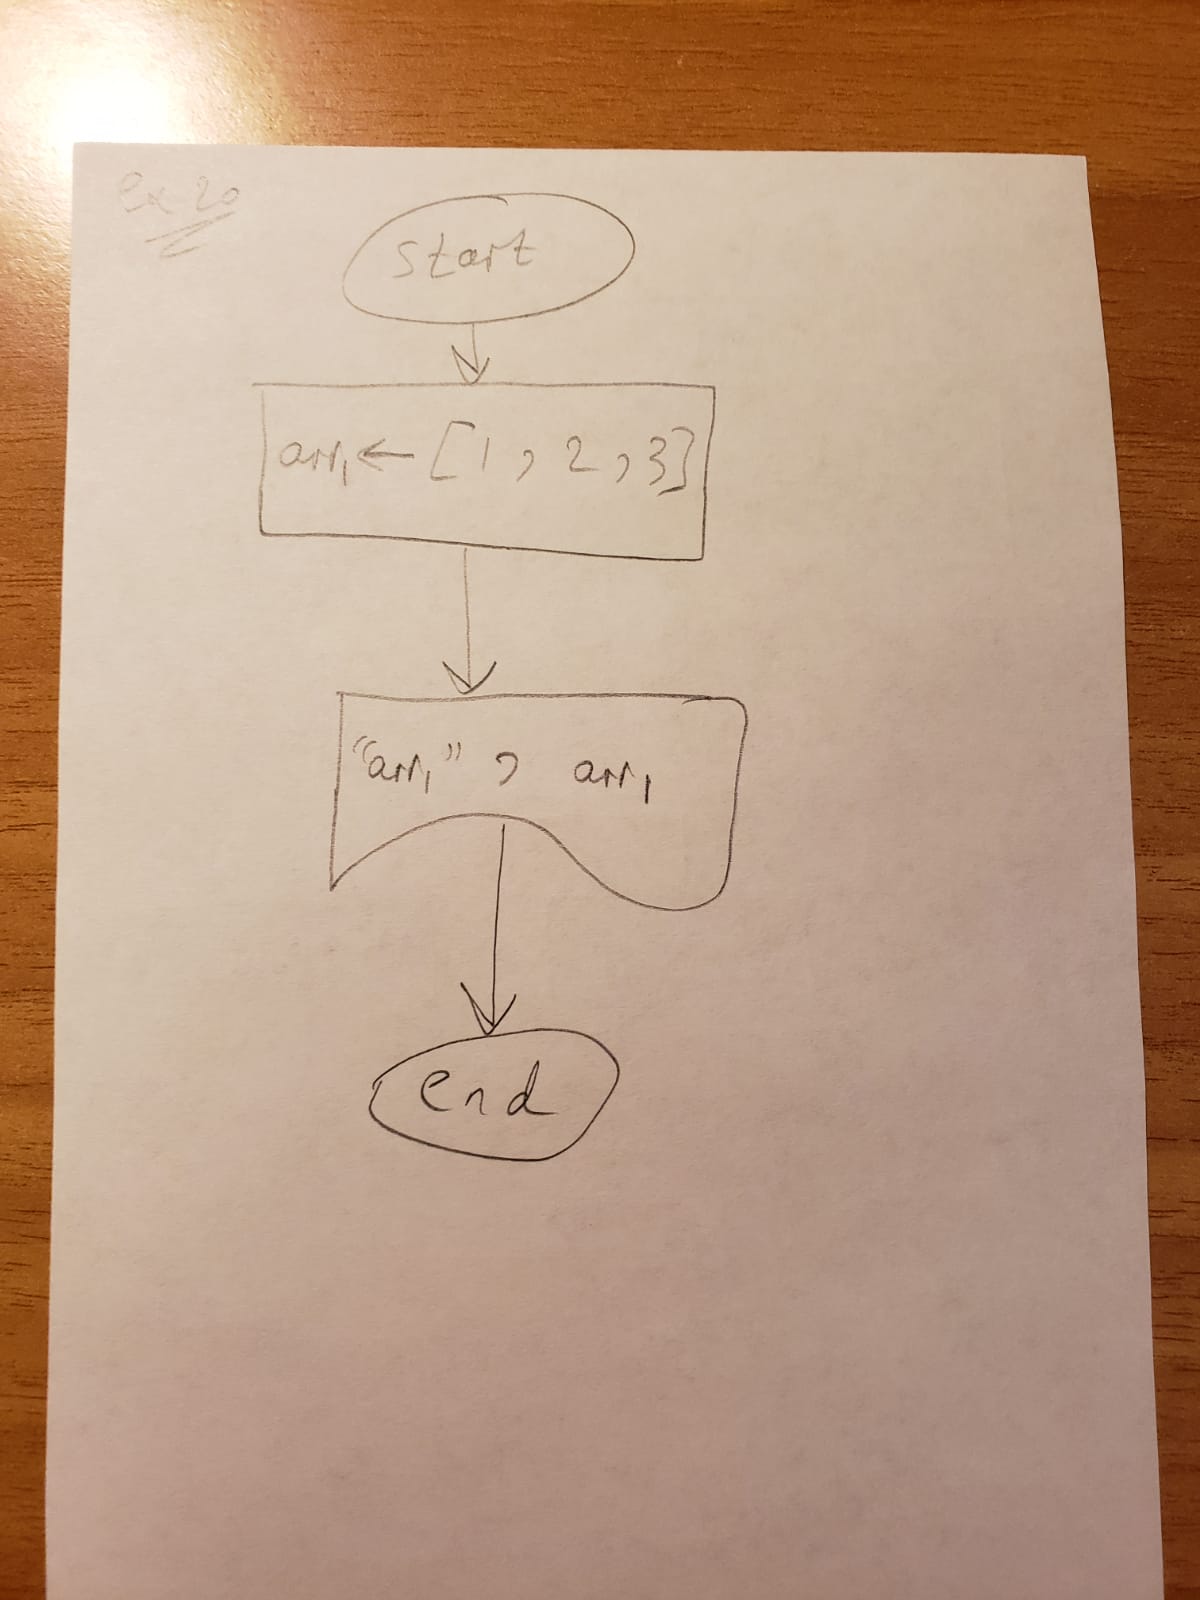 ex 20
start
arr₁ ← [1, 2, 3]
"arr₁" , arr₁
end